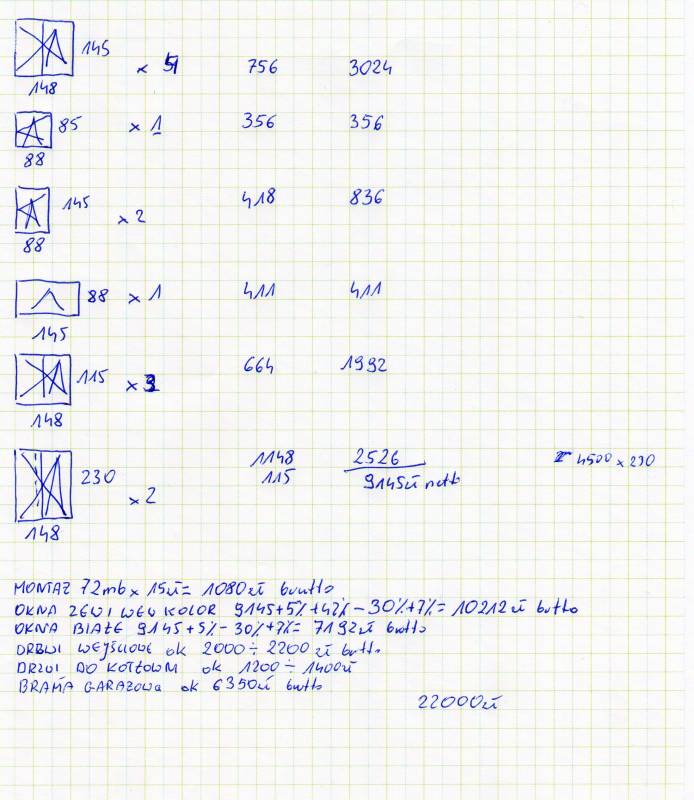 145 x 4 756 3024
148
85 x 1 356 356
88
145 x 2 418 836
88
88 x 1 411 411
145
115 x 3 664 1992
148
1148 2526
230 x 2 115 9145zł netto 4500 x 230
148
MONTAŻ 72mb x 15zł = 1080zł brutto
OKNA ZEW I WEW KOLOR 9145+5%+42%-30%+7%= 10212zł brutto
OKNA BIAŁE 9145+5%-30%+7%= 7192zł brutto
DRZWI WEJŚCIOWE ok 2000÷2200 zł brutto
DRZWI DO KOTŁOWNI ok 1200÷1400zł
BRAMA GARAŻOWA ok 6350zł brutto
22000zł